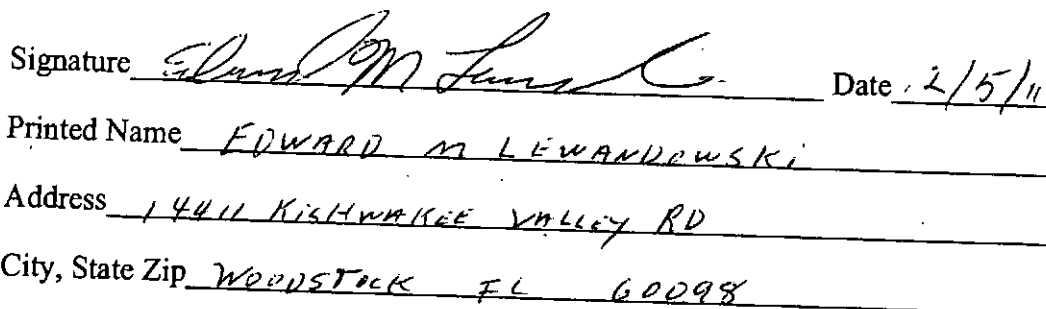 Signature Edward M Lewandowski Date 2/5/11
Printed Name EDWARD M LEWANDOWSKI
Address 14411 KISHWAKEE VALLEY RD
City, State Zip WOODSTOCK IL 60098